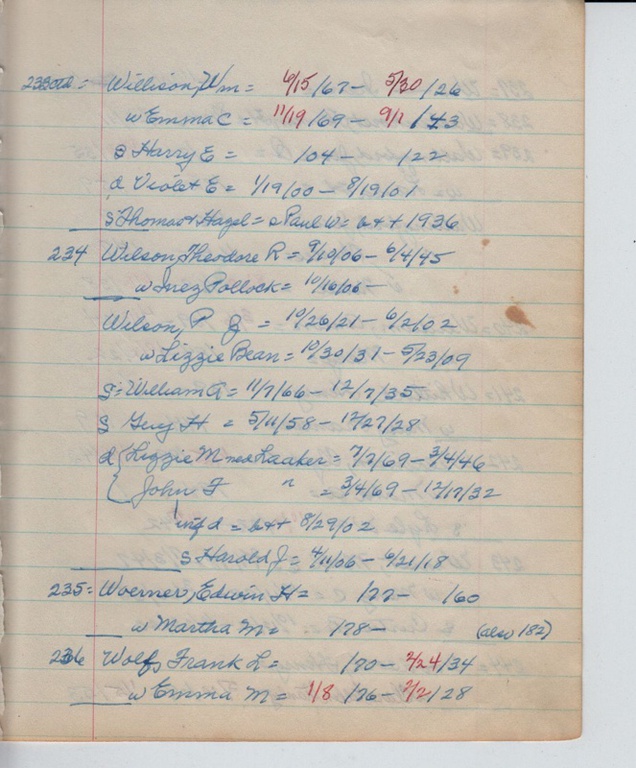 233 = Willison, Wm = 6/15/67 - 5/30/26
w Emma C = 11/19/69 - 9/1/43
s Harry E = /04 - /22
d Violet E = 1/19/00 - 8/19/01
s Thomas + Hazel = s Paul W = b++ 1936
234 Wilson, Theodore R = 9/10/06 - 6/4/45
w Inez Pollock = 10/16/06 -
Wilson, P J = 10/26/21 - 6/2/02
w Lizzie Bean = 10/30/31 - 5/23/09
s = William A = 11/7/66 - 12/7/35
s Guy H = 5/11/58 - 12/27/28
d { Lizzie M nee Laaker = 7/7/69 - 3/4/46
{ John F " = 3/4/69 - 12/17/32
inf d = b++ 8/29/02
s Harold J = 4/11/06 - 6/21/18
235 = Woerner, Edwin H = /77 - /60
w Martha M = /78 - (also 182)
236 Wolfs Frank L = /70 - 2/24/34
w Emma M = 1/8/76 - 7/2/28